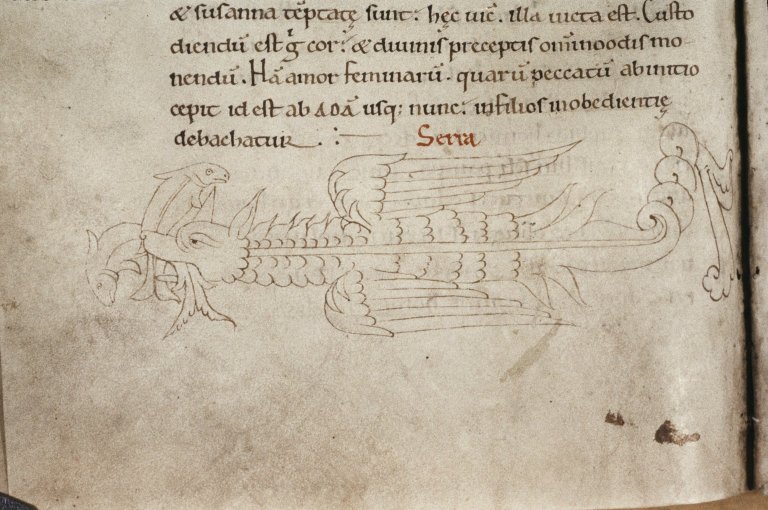 & susanna tēptatę sunt: hęc uic̄. illa uicta est. Custo
diendū est g̊ cor: & diuinis preceptis om̄inoodis mo
nendū. Hā amor feminarū. quarū peccatū ab initio
cepit id est ab ADĀ usq; nunc: in filios inobedientię
debachatur
Serra